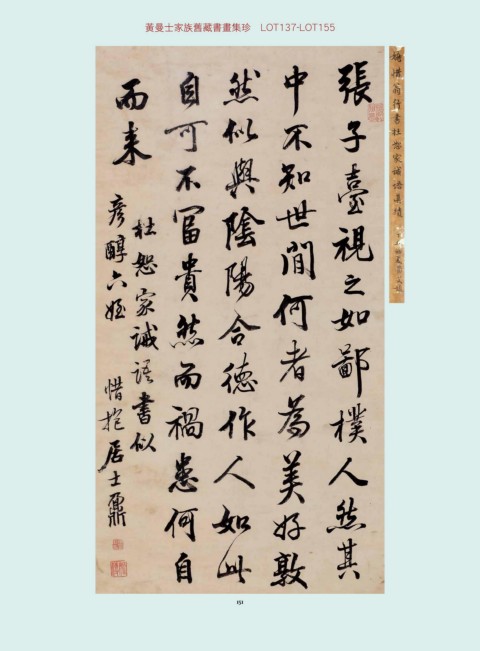 黃曼士家族舊藏書畫集珍 LOT137-LOT155
姚惜翁行書杜恕家誡語真蹟
張子臺視之如鄙樸人然其
中不知世間何者為美好敦
然似與陰陽合德作人如此
自可不富貴然而禍患何自
而来
杜恕家誡語書似
彥醇六姪
惜抱居士鼐
151